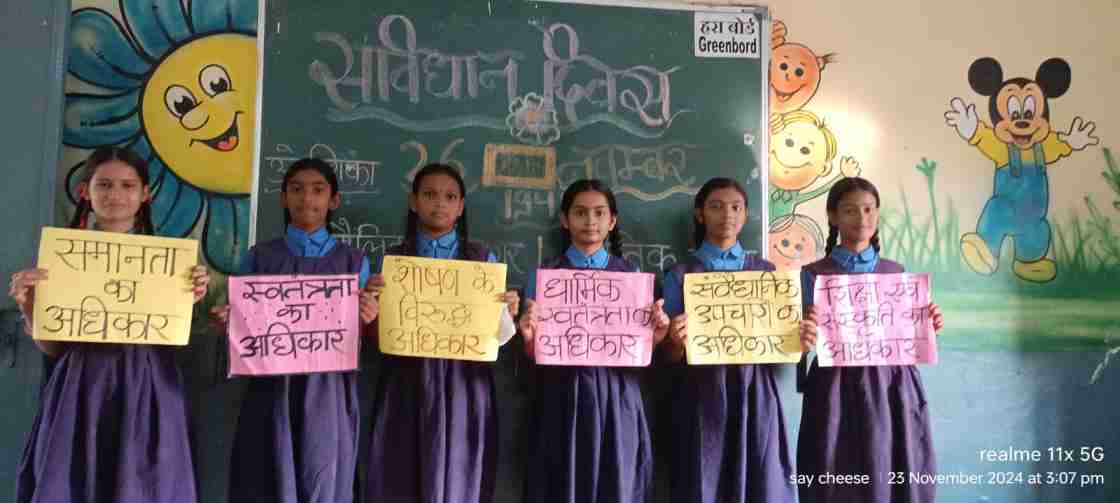 हरा बोर्ड
Greenbord
संविधान दिवस
26
नवम्बर
समानता
का
अधिकार
स्वतंत्रता
का
अधिकार
शोषण के
विरुद्ध
अधिकार
धार्मिक
स्वतंत्रता का
अधिकार
संवैधानिक
उपचारों का
अधिकार
शिक्षा एवं
संस्कृति का
अधिकार
realme 11x 5G
say cheese | 23 November 2024 at 3:07 pm